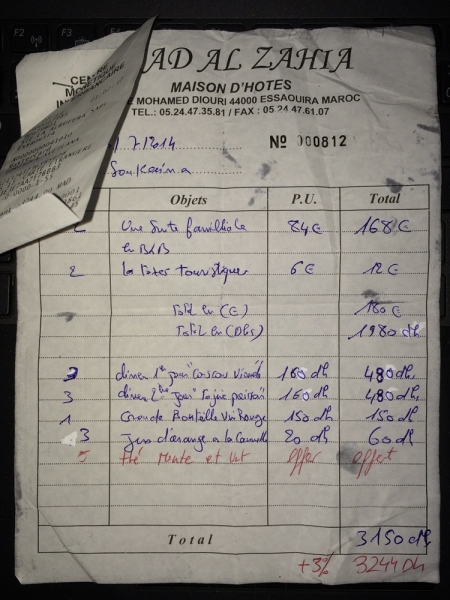 AD AL ZAHIA
MAISON D'HOTES
MOHAMED DIOURI 44000 ESSAOUIRA MAROC
TEL.: 05.24.47.35.81 / FAX : 05.24.47.61.07
.7/2014
Nº 000812
Soukaina
Objets P.U. Total
2 Une Suite familliale 84€ 168€
en B&B
2 la taxes touristiques 6€ 12€
Total en (€) 180€
Total en (Dhs) 1980 dh
3 diner 1er jour "couscous viande" 160 dh 480 dh
3 diner 2ème jour "Tajine poisson" 160 dh 480 dh
1 Grande Bouteille Vin Rouge 150 dh 150 dh
3 Jus d'orange a la Cannelle 20 dh 60 dh
5 thé Mente et offer offert
Total 3150 dh
+3% 3244 Dh